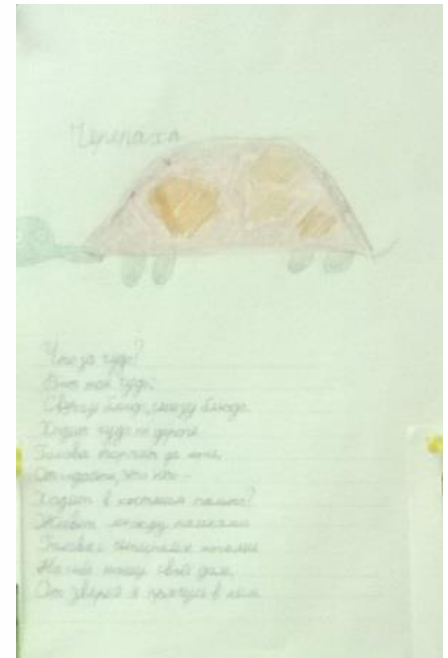 Черепаха
Что за чудо?
Вот так чудо!
Сверху блюдо, снизу блюдо.
Ходит чудо по дороге
Голова торчит да ноги.
Отгадайте, что это -
Ходит в костяном пальто?
Живёт между камнями
Голова с четырьмя ногами
На себе ношу свой дом,
От зверей я прячусь в нём